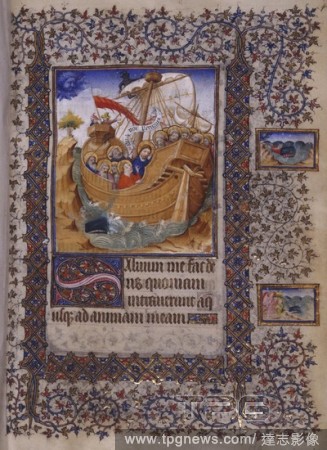 Saluum me fac de
us quoniam
intrauerunt aq
usq; ad animam meam
TPG
www.tpgnews.com/ 達志影像